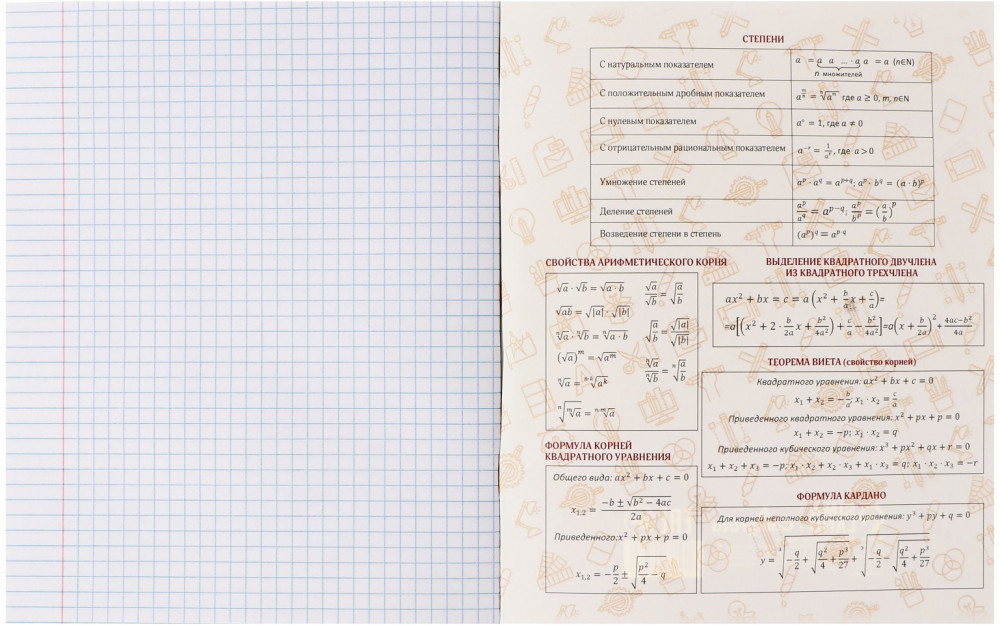 СТЕПЕНИ
С натуральным показателем a = a a ... a a = a (n∈N)
n множителей
С положительным дробным показателем a^(m/n) = ⁿ√(a^m) где a ≥ 0, m, n∈N
С нулевым показателем a^0 = 1, где a ≠ 0
С отрицательным рациональным показателем a^(−r) = 1/a^r, где a > 0
Умножение степеней a^p · a^q = a^(p+q); a^p · b^q = (a · b)^p
Деление степеней a^p/a^q = a^(p−q); a^p/b^p = (a/b)^p
Возведение степени в степень (a^p)^q = a^(p·q)
СВОЙСТВА АРИФМЕТИЧЕСКОГО КОРНЯ
√a · √b = √(a · b) √a/√b = √(a/b)
√(ab) = √|a| · √|b|
ⁿ√a · ⁿ√b = ⁿ√(a · b) √(a/b) = √|a|/√|b|
(√a)^m = √(a^m)
ⁿ√a = ⁿ·ᵏ√(a^k) ⁿ√a/ⁿ√b = ⁿ√(a/b)
ⁿ√(ᵐ√a) = ⁿ·ᵐ√a
ФОРМУЛА КОРНЕЙ
КВАДРАТНОГО УРАВНЕНИЯ
Общего вида: ax² + bx + c = 0
x₁,₂ = (−b ± √(b² − 4ac))/2a
Приведенного: x² + px + p = 0
x₁,₂ = −p/2 ± √(p²/4 − q)
ВЫДЕЛЕНИЕ КВАДРАТНОГО ДВУЧЛЕНА
ИЗ КВАДРАТНОГО ТРЕХЧЛЕНА
ax² + bx = c = a(x² + b/a x + c/a)=
=a[(x² + 2 · b/2a x + b²/4a²) + c/a − b²/4a²]=a(x + b/2a)² + (4ac−b²)/4a
ТЕОРЕМА ВИЕТА (свойство корней)
Квадратного уравнения: ax² + bx + c = 0
x₁ + x₂ = −b/a; x₁ · x₂ = c/a
Приведенного квадратного уравнения: x² + px + p = 0
x₁ + x₂ = −p; x₁ · x₂ = q
Приведенного кубического уравнения: x³ + px² + qx + r = 0
x₁ + x₂ + x₃ = −p; x₁ · x₂ + x₂ · x₃ + x₁ · x₃ = q; x₁ · x₂ · x₃ = −r
ФОРМУЛА КАРДАНО
Для корней неполного кубического уравнения: y³ + py + q = 0
y = ³√(−q/2 + √(q²/4 + p³/27)) + ³√(−q/2 − √(q²/4 + p³/27))